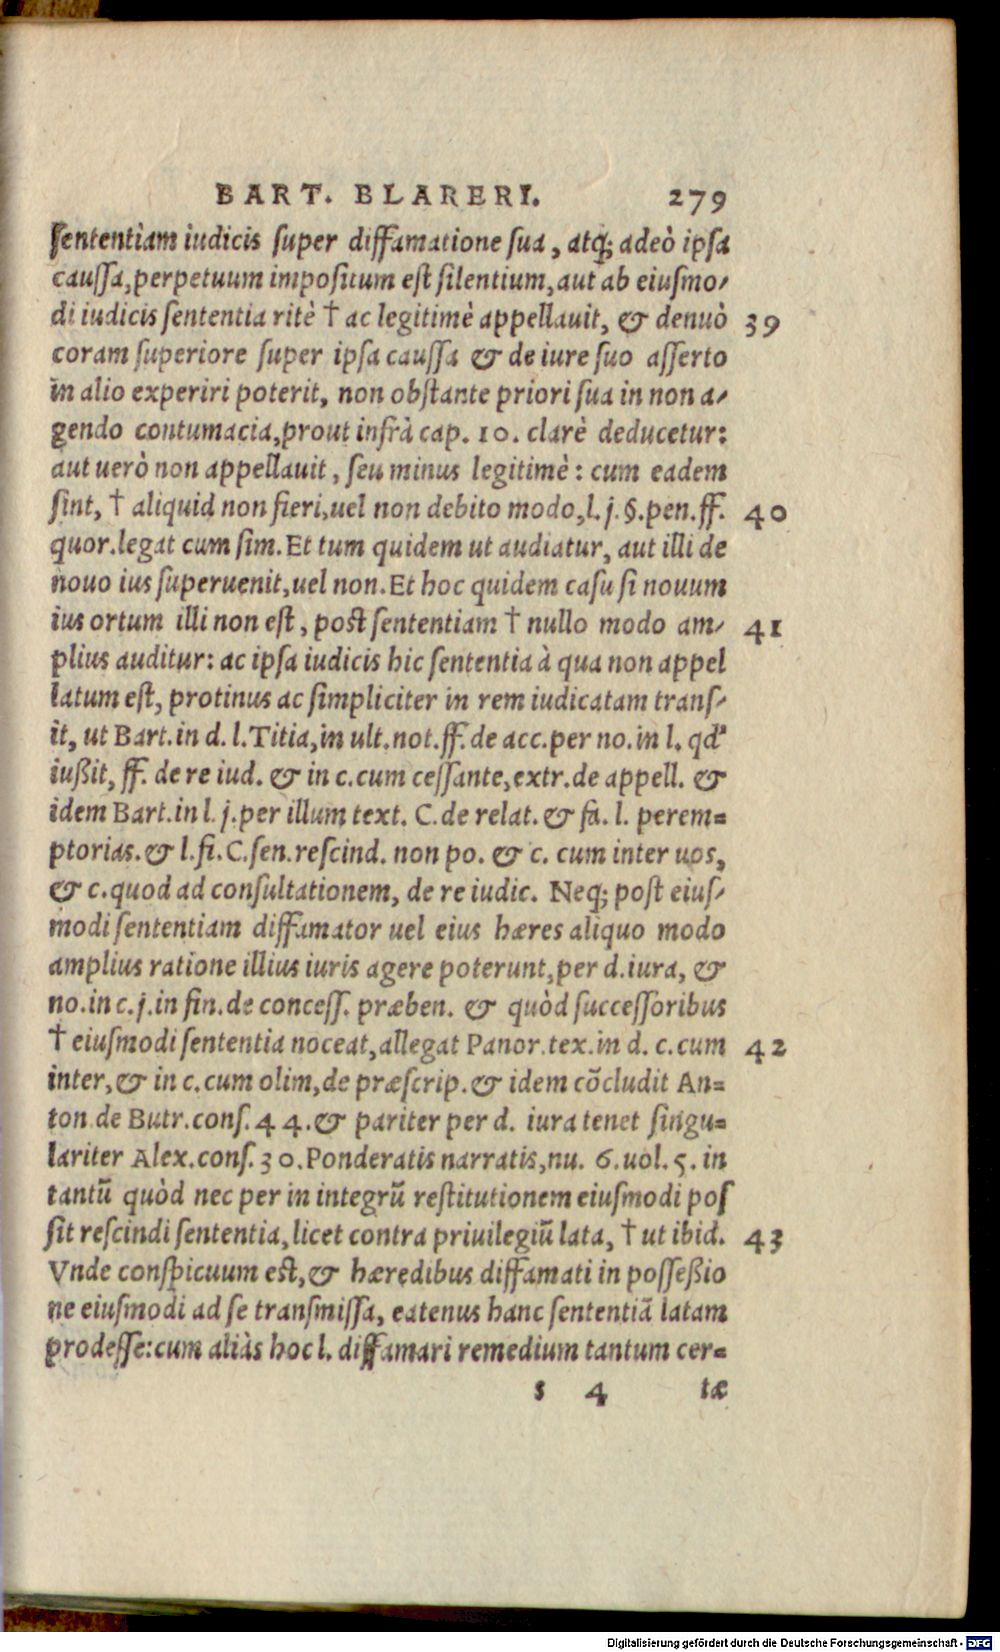 BART. BLARERI. 279
sententiam iudicis super diffamatione sua, atq; adeò ipsa
caussa, perpetuum impositum est silentium, aut ab eiusmo-
di iudicis sententia ritè † ac legitimè appellauit, & denuò 39
coram superiore super ipsa caussa & de iure suo asserto
in alio experiri poterit, non obstante priori sua in non a-
gendo contumacia, prout infrà cap. 10. clarè deducetur:
aut uerò non appellauit, seu minus legitimè: cum eadem
sint, † aliquid non fieri, uel non debito modo, l. j. §. pen. ff. 40
quor. legat cum sim. Et tum quidem ut audiatur, aut illi de
nouo ius superuenit, uel non. Et hoc quidem casu si nouum
ius ortum illi non est, post sententiam † nullo modo am- 41
plius auditur: ac ipsa iudicis hic sententia à qua non appel
latum est, protinus ac simpliciter in rem iudicatam trans-
it, ut Bart. in d. l. Titia, in ult. not. ff. de acc. per no. in l. qd'
iußit, ff. de re iud. & in c. cum cessante, extr. de appell. &
idem Bart. in l. j. per illum text. C. de relat. & fa. l. perem-
ptorias. & l. fi. C. sen. rescind. non po. & c. cum inter uos,
& c. quod ad consultationem, de re iudic. Neq; post eius-
modi sententiam diffamator uel eius hæres aliquo modo
amplius ratione illius iuris agere poterunt, per d. iura, &
no. in c. j. in fin. de concess. præben. & quòd successoribus
† eiusmodi sententia noceat, allegat Panor. tex. in d. c. cum 42
inter, & in c. cum olim, de præscrip. & idem cōcludit An-
ton de Butr. cons. 44. & pariter per d. iura tenet singu-
lariter Alex. cons. 30. Ponderatis narratis, nu. 6. uol. 5. in
tantū quòd nec per in integrū restitutionem eiusmodi pos
sit rescindi sententia, licet contra priuilegiū lata, † ut ibid. 43
Vnde conspicuum est, & hæredibus diffamati in possessio
ne eiusmodi ad se transmissa, eatenus hanc sententiā latam
prodesse: cum aliàs hoc l. diffamari remedium tantum cer-
s 4 tæ
Digitalisierung gefördert durch die Deutsche Forschungsgemeinschaft - DFG